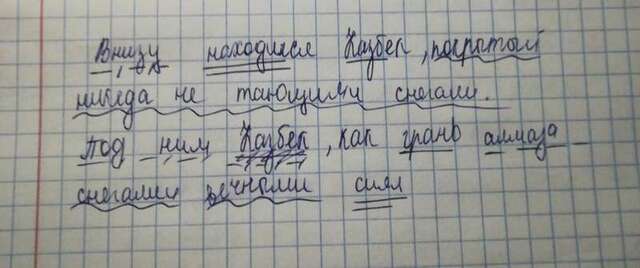 Внизу находился Казбек, покрытый
никогда не тающими снегами.
Под ним Казбек, как грань алмаза
снегами вечными сиял